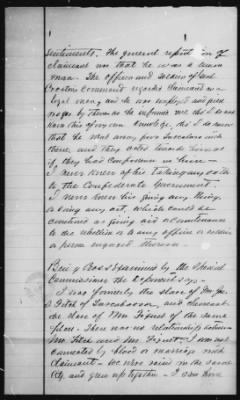 sentiments. The general report in of
claimant was that he was a union
man. The officers and soldiers of Genl
Command regarded Claimant as a
loyal man, and he was employed and paid
wages by them as he informed me. As I do not
know this of my own knowledge. As I do know
that he went away from Tuscaloosa with
them, and they acted towards him as
if they had confidence in him —
I never knew of his taking any oath
to the Confederate Government.
I never knew his giving any thing,
or doing any act, which could be
construed as giving aid or countenance
to the rebellion or to any officer or soldier
or person engaged therein.
Benj Ross Examined by the Special
Commissioner the 2d provost says —
I was formerly the slave of Dr. Jas.
Fitch of Tuscaloosa, and afterwards
the slave of Mr. of the same
place. There was no relationship between
Mr. Fitch and Mr. I am not
connected by blood or marriage with
Claimant — We were raised in the same
City, and grew up together — I saw him